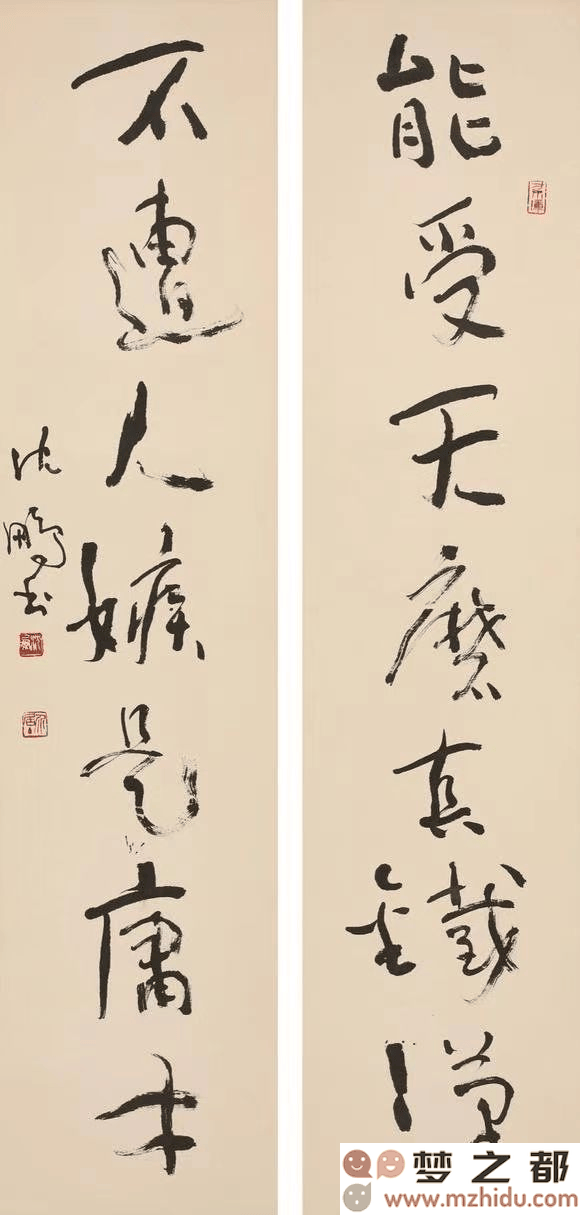 能受天磨真鐵漢
不遭人嫉是庸才
沈鵬书
梦之都
www.mzhidu.com